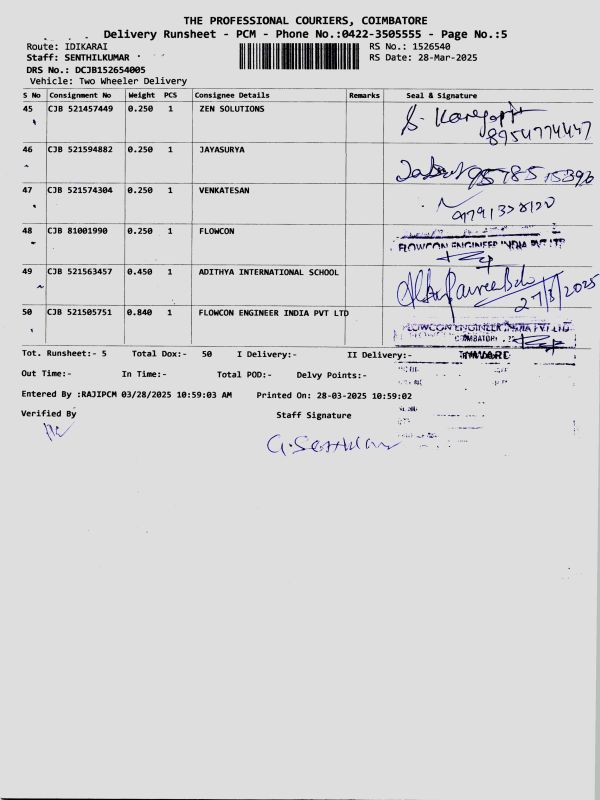 THE PROFESSIONAL COURIERS, COIMBATORE
Delivery Runsheet - PCM - Phone No.:0422-3505555 - Page No.:5
Route: IDIKARAI RS No.: 1526540
Staff: SENTHILKUMAR RS Date: 28-Mar-2025
DRS No.: DCJB152654005
Vehicle: Two Wheeler Delivery
S No Consignment No Weight PCS Consignee Details Remarks Seal & Signature
45 CJB 521457449 0.250 1 ZEN SOLUTIONS
8954774447
46 CJB 521594882 0.250 1 JAYASURYA
47 CJB 521574304 0.250 1 VENKATESAN
48 CJB 81001990 0.250 1 FLOWCON
FLOWCON ENGINEER INDIA PVT LTD
49 CJB 521563457 0.450 1 ADITHYA INTERNATIONAL SCHOOL
27/3/2025
50 CJB 521505751 0.840 1 FLOWCON ENGINEER INDIA PVT LTD
FLOWCON ENGINEER INDIA PVT LTD
COIMBATORE
Tot. Runsheet:- 5 Total Dox:- 50 I Delivery:- II Delivery:- INWARD
Out Time:- In Time:- Total POD:- Delvy Points:-
Entered By :RAJIPCM 03/28/2025 10:59:03 AM Printed On: 28-03-2025 10:59:02
Verified By Staff Signature
G. Senthil